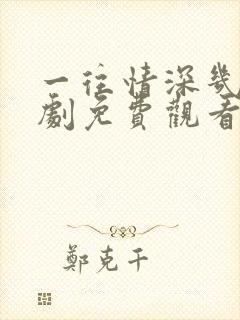 一往情深幾
劇免費觀看
鄭克干